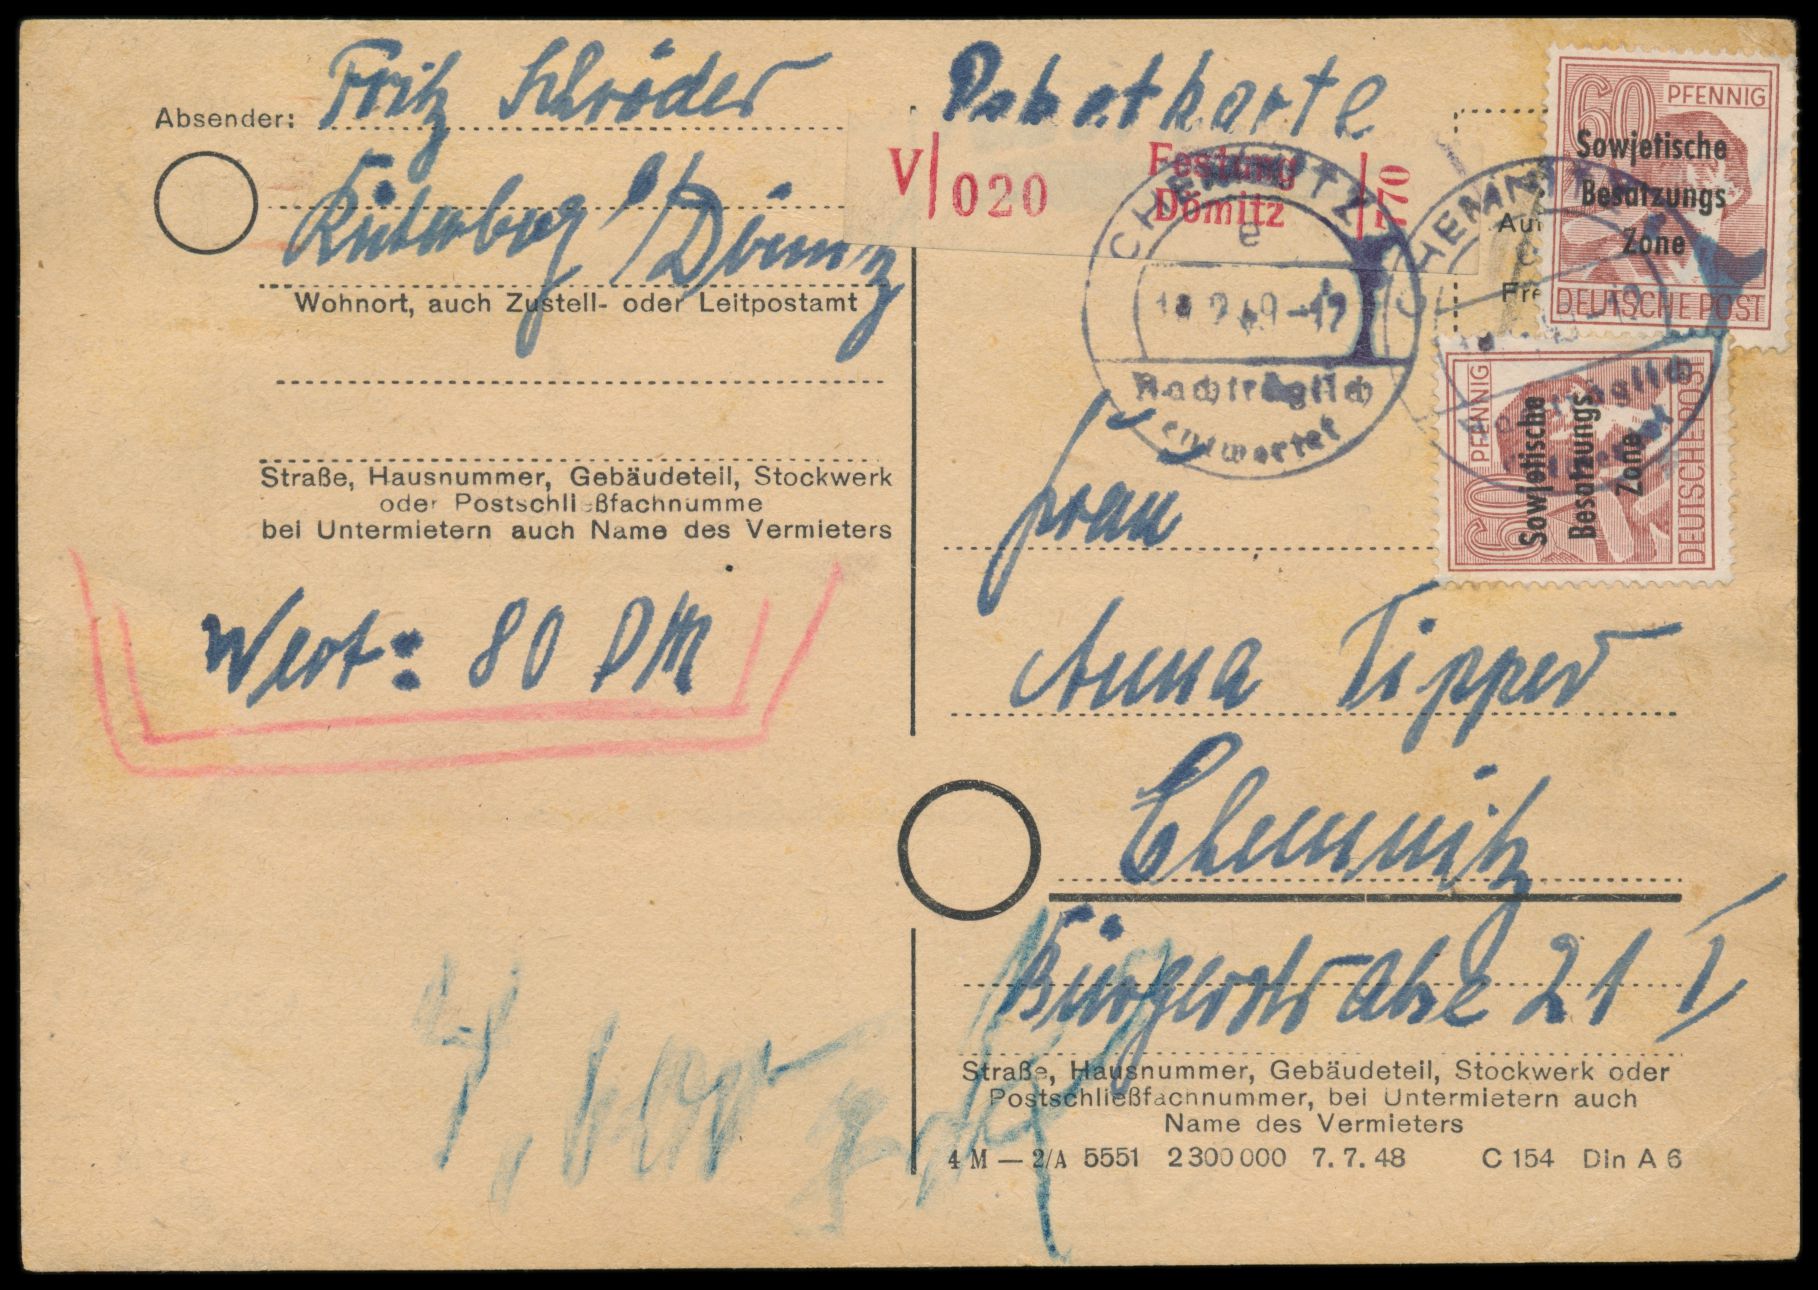 Absender: Fritz Schröder
Rüterberg b/Dömitz
Wohnort, auch Zustell- oder Leitpostamt
Straße, Hausnummer, Gebäudeteil, Stockwerk
oder Postschließfachnumme
bei Untermietern auch Name des Vermieters
Wert: 80 DM
Paketkarte
V 020 Festung Dömitz 770
CHEMNITZ
e
Nachträglich
entwertet
CHEMNITZ
Nachträglich
entwertet
60 PFENNIG
Sowjetische
Besatzungs
Zone
DEUTSCHE POST
60 PFENNIG
Sowjetische
Besatzungs
Zone
DEUTSCHE POST
Frau
Anna Tipper
Chemnitz
Bürgerstraße 21 I
Straße, Hausnummer, Gebäudeteil, Stockwerk oder
Postschließfachnummer, bei Untermietern auch
Name des Vermieters
4 M — 2/A 5551 2300000 7. 7. 48 C 154 Din A 6